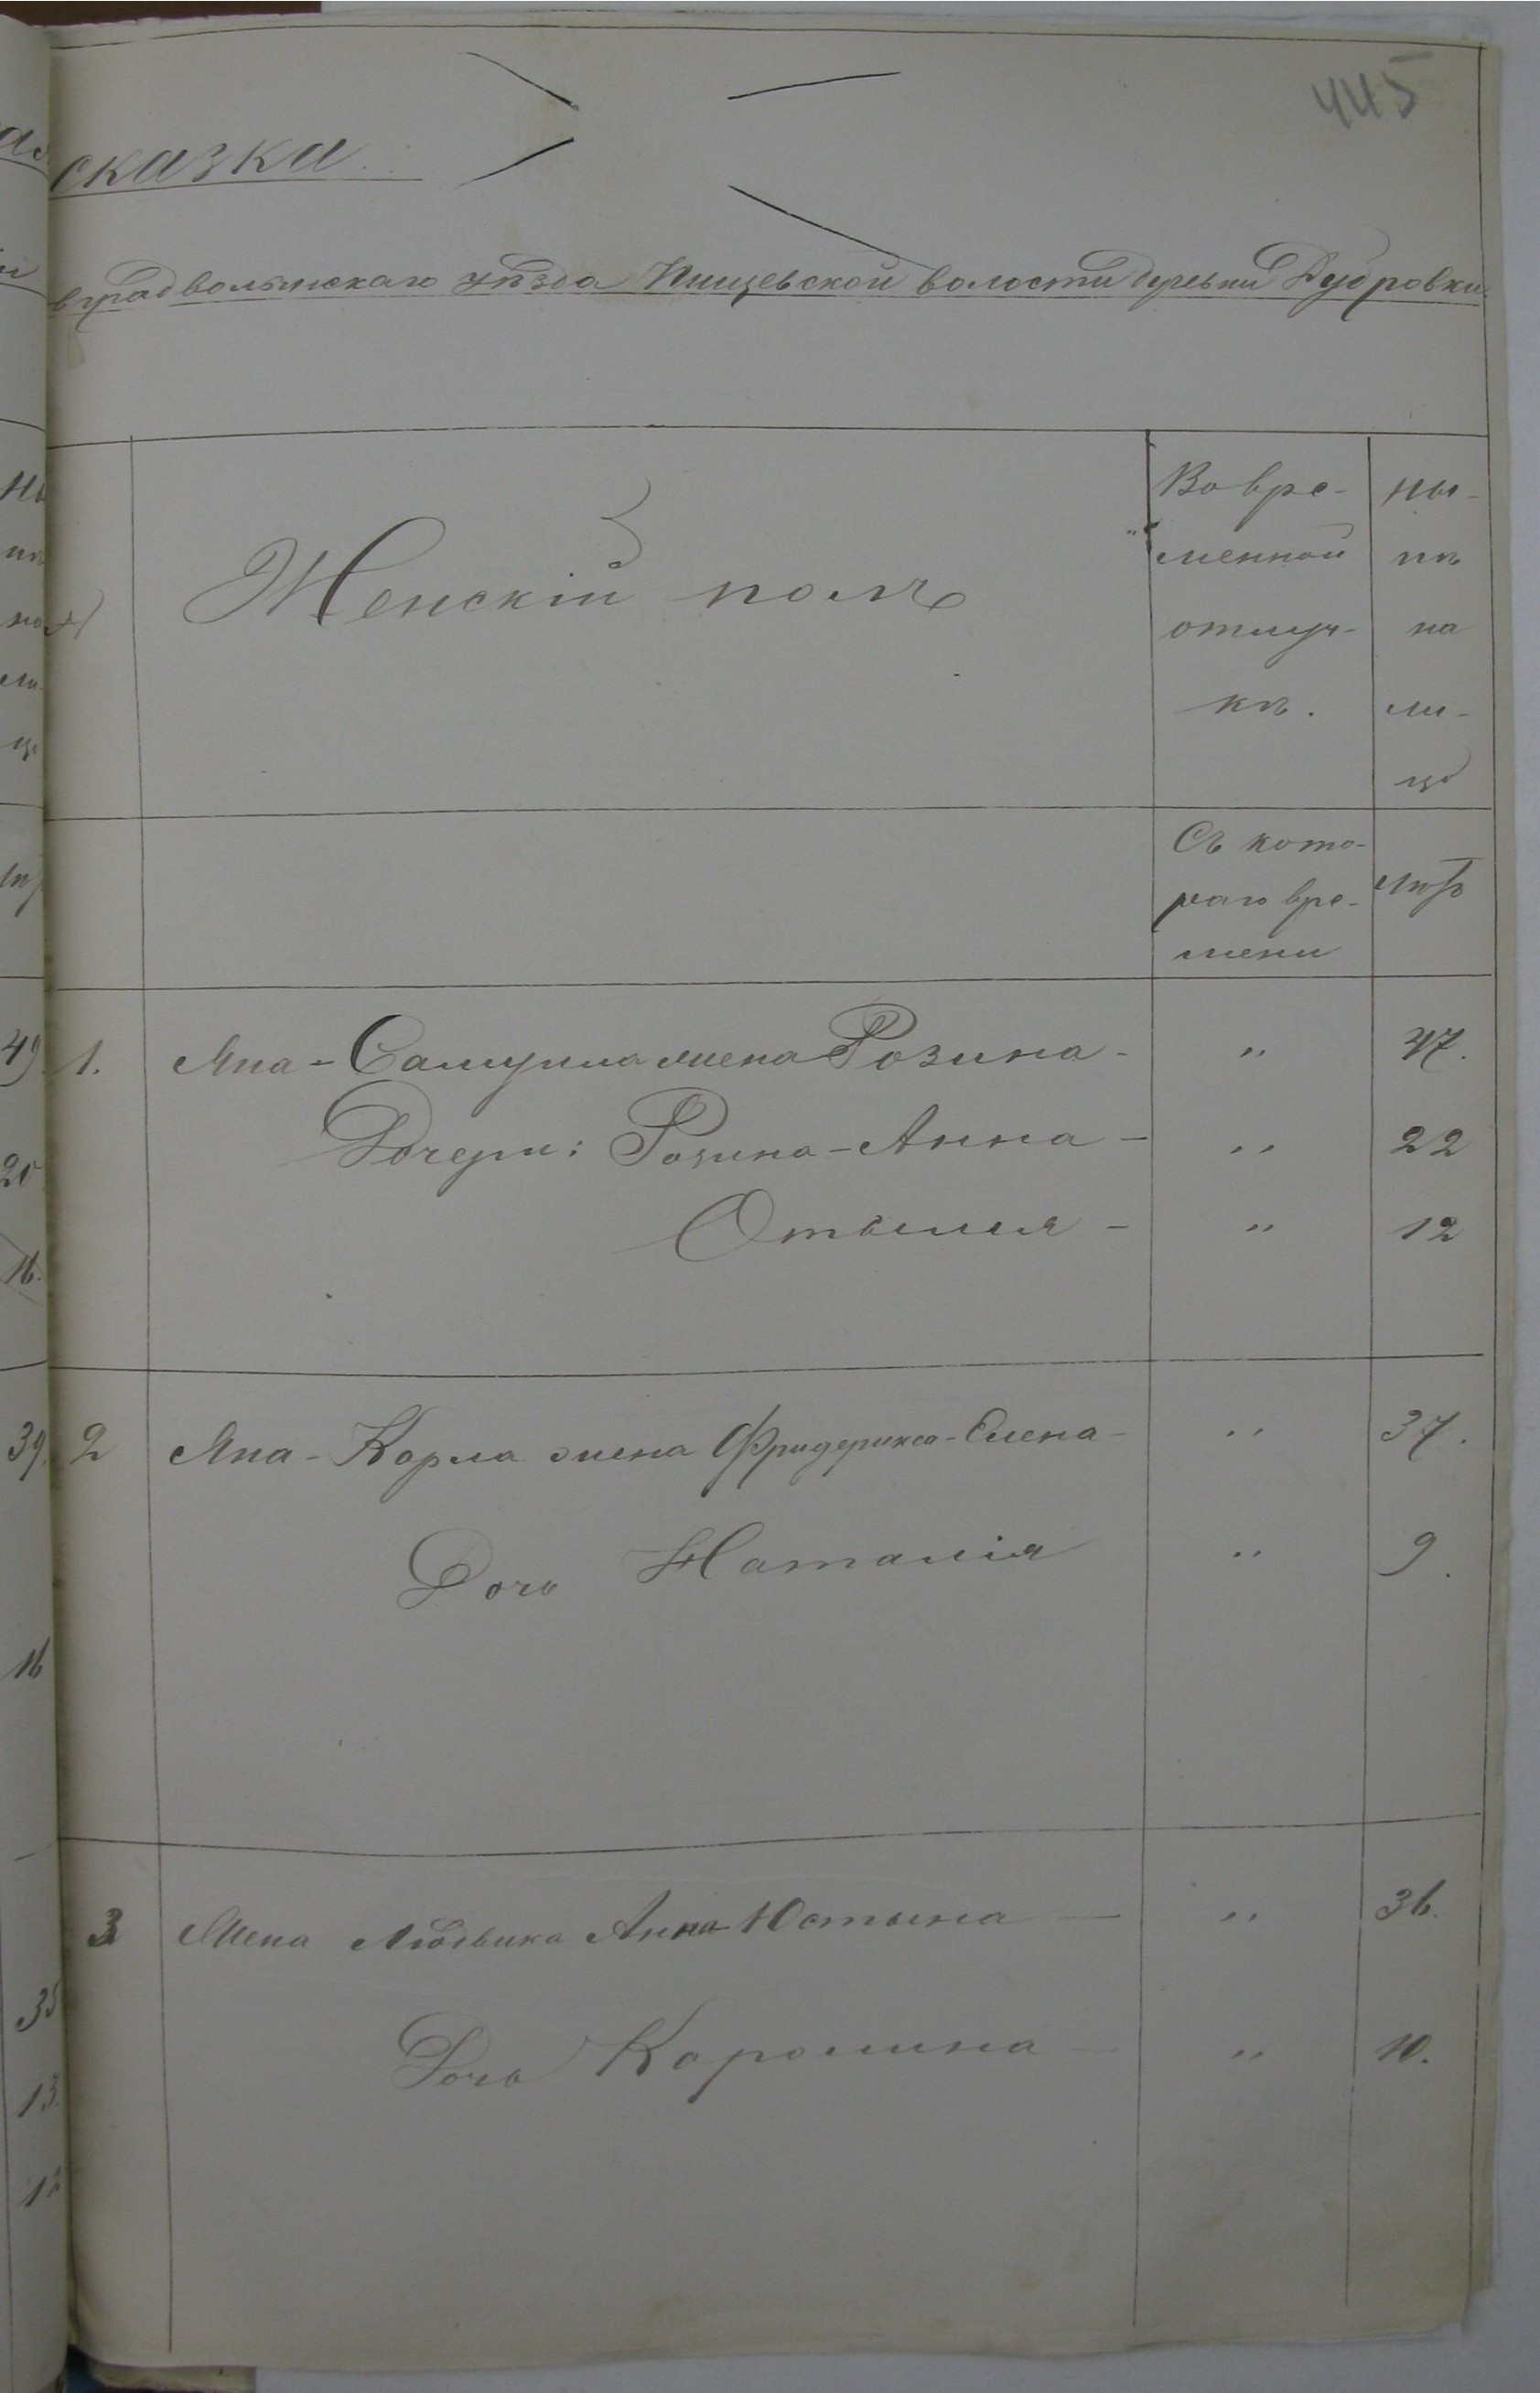 445
сказка
вградволынскаго уѣзда Пищевской волости деревни Дубровки
№
Женскій полъ
Во вре-
менной
отлуч-
кѣ.
ны-
нѣ
на
ли-
цо
Съ кото-
раго вре-
мени
лѣтъ
1. Яна-Самуила жена Розина - " 47.
Дочери: Розина-Анна - " 22
Отылия - " 12
2 Яна-Карла жена Фридерика-Елена - " 37.
Дочь Наталія " 9.
3 Жена Людвика Анна-Юстына - " 36.
Дочь Каролина - " 10.
49
20
16.
39.
16
35
13.